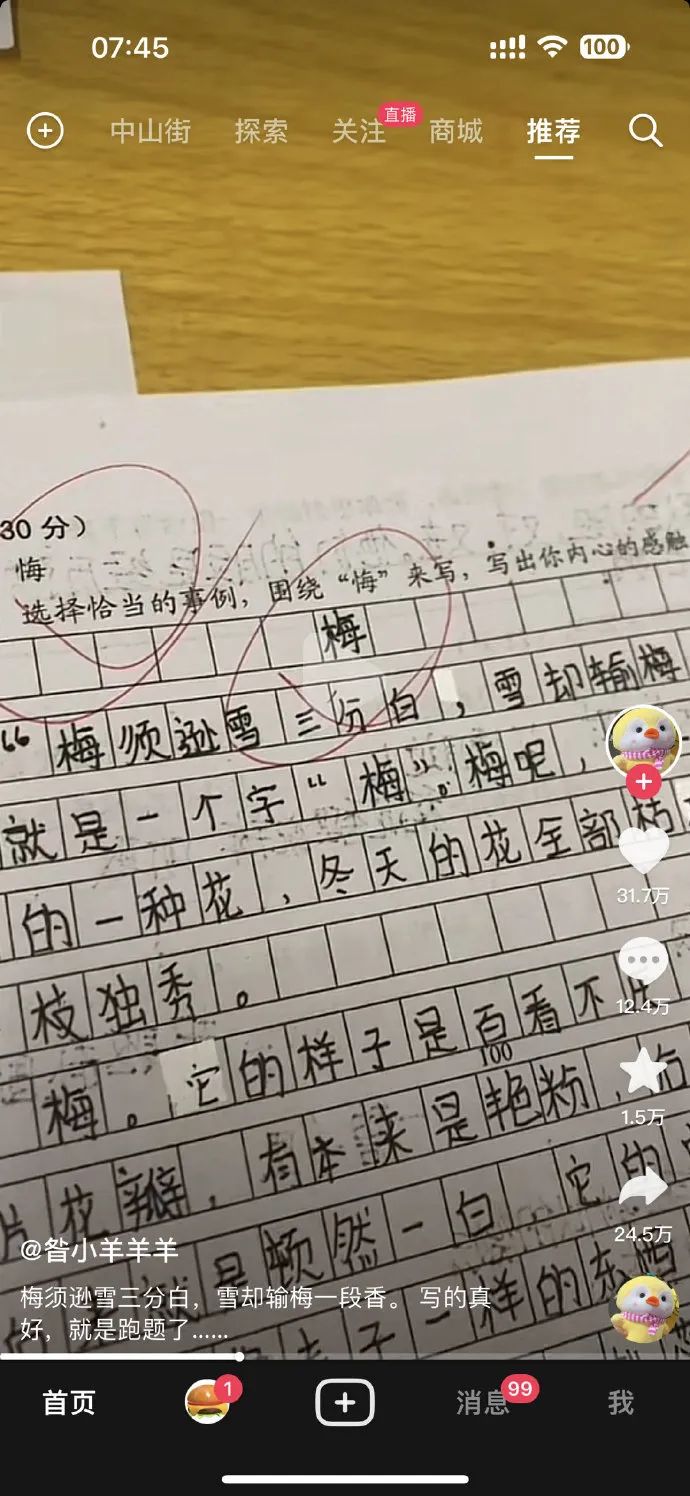 07:45
100
中山街 探索 关注 直播 商城 推荐
30 分）
悔
选择恰当的事例，围绕“悔”来写，写出你内心的感触
梅
“梅须逊雪三分白，雪却输梅
就是一个字“梅”。梅呢，一
的一种花，冬天的花全部枯
枝独秀。
梅。它的样子是百看不
100
片花瓣，有本来是艳粉，后
就是顿然一白，它的
子一样的东西
31.7万
12.4万
1.5万
24.5万
@昝小羊羊羊
梅须逊雪三分白，雪却输梅一段香。 写的真
好，就是跑题了......
首页 1 消息 99 我